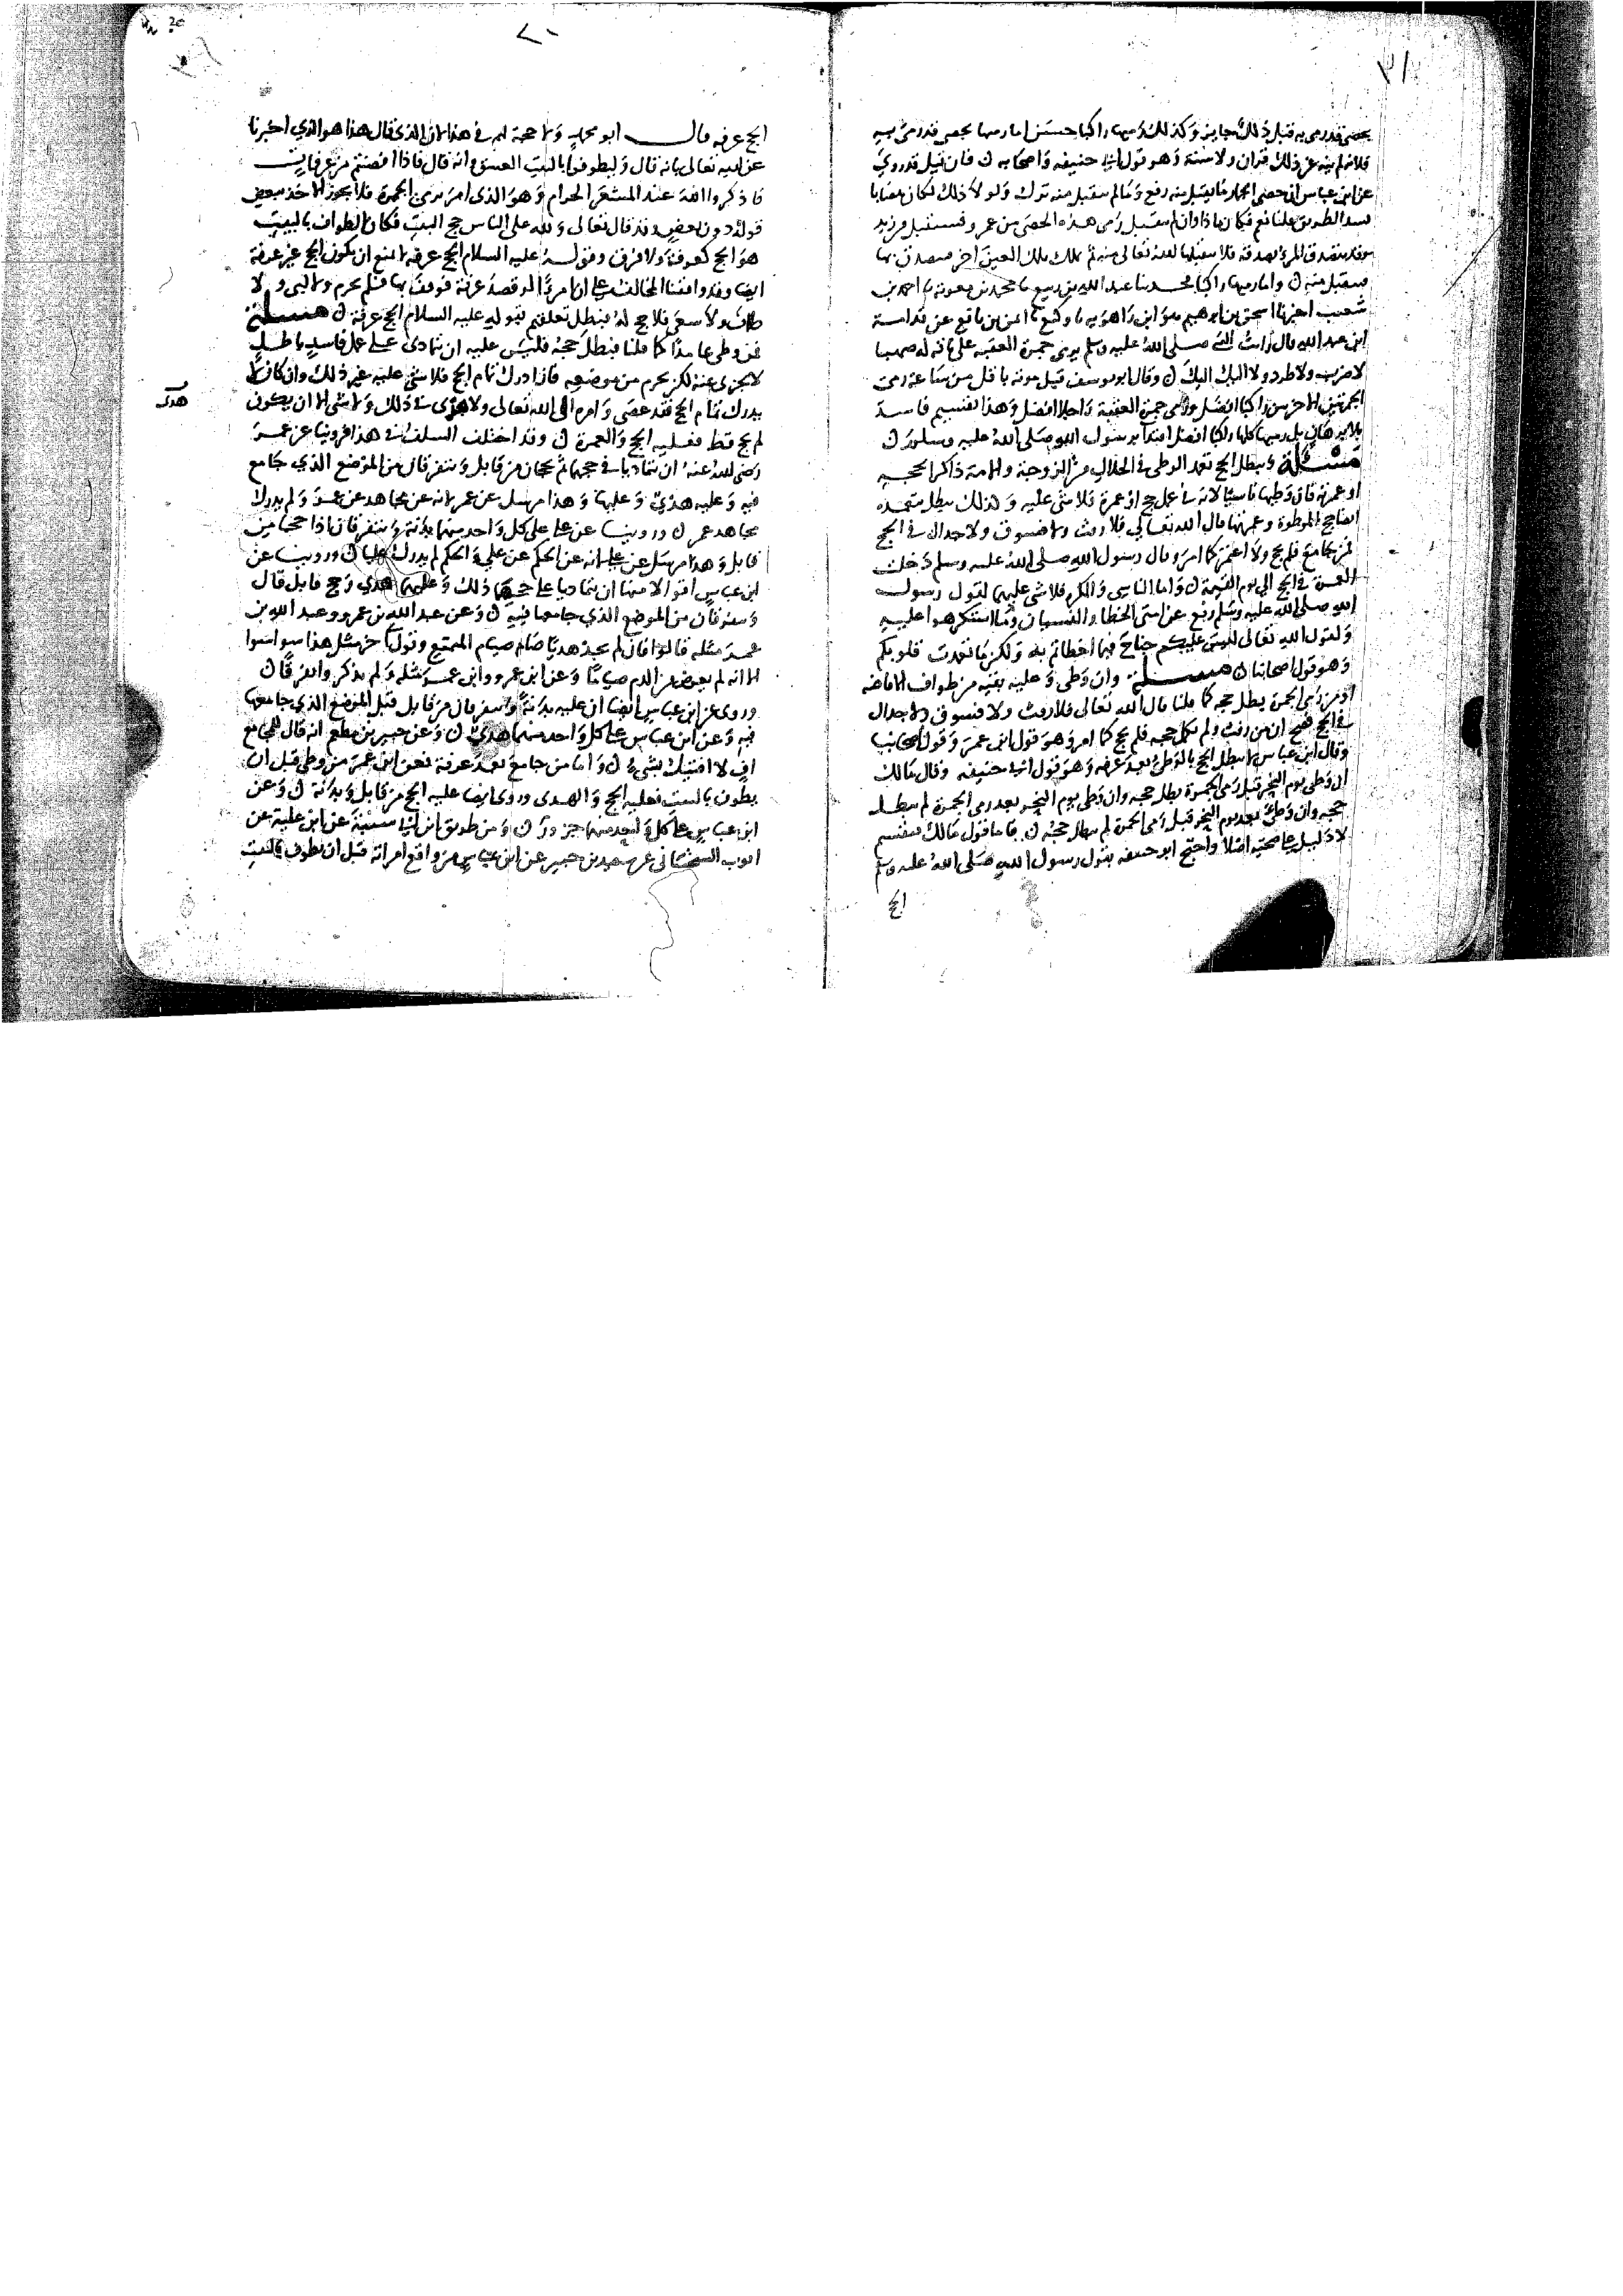 بحصى قد رمى به قبل ذلك جايز وكذلك رميها راكبا حسن اما رميها بحصى قد رمى به
فلانه لم ينه عن ذلك قران ولا سنة وهو قول ابى حنيفه واصحابه ن فان قيل قد روى
عن ابن عباس ان حصى الجمار ما يقبل منه رفع وما لم يتقبل منه ترك ولو لا ذلك لكان هضابا
يسد الطريق قلنا نعم فكان ماذا وان لم يتقبل رمى هذه الحصى من عمرو فسيتقبل من زيد
وقد يتصدق المرء بصدقة فلا يقبلها الله تعالى منه ثم يملك تلك العين اخر فيتصدق بها
فيتقبل منه ن واما رميها راكبا فحدثنا عبد الله بن ربيع نا محمد بن معوية نا احمد بن
شعيب اخبرنا اسحق بن ابرهيم هو ابن راهويه نا وكيع نا ايمن بن نابل عن قدامة
ابن عبد الله قال رايت النبى صلى الله عليه وسلم يرمى جمرة العقبه على ناقة له صهبا
لا ضرب ولا طرد ولا اليك اليك ن وقال ابو يوسف قبل موته باقل من ساعة رمى
الجمرتين الاخرتين راكبا افضل ورمى جمرة العقبة راجلا افضل وهذا تقسيم فاسد
بلا برهان بل رميها كلها راكبا افضل اقتدا برسول الله صلى الله عليه وسلم ن
مسئلة ويبطل الحج تعمد الوطى فى الحلال من الزوجة والامة ذاكرا لحجه
او عمرته فان وطيها ناسيا لانه فى عمل حج او عمرة فلا شى عليه وكذلك يبطل بتعمده
ايضا حج الموطوة وعمرتها قال الله تعالى فلا رفث ولا فسوق ولا جدال فى الحج
فمن جامع فلم يحج ولا اعتمر كما امر وقال رسول الله صلى الله عليه وسلم دخلت
العمرة فى الحج الى يوم القيمة ن واما الناسى والمكره فلا شى عليهما لقول رسول
الله صلى الله عليه وسلم رفع عن امتى الخطا والنسيان وما استكرهوا عليه
ولقول الله تعالى ليس عليكم جناح فيما اخطاتم به ولكن ما تعمدت قلوبكم
وهو قول اصحابنا ن مسئلة وان وطى وعليه بقية من طواف الافاضه
او من رمى الجمرة بطل حجه كما قلنا قال الله تعالى فلا رفث ولا فسوق ولا جدال
فى الحج فصح ان من رفث ولم يكمل حجه فلم يحج كما امر وهو قول ابن عمر وقول اصحابنا
وقال ابن عباس لا يبطل الحج بالوطى بعد عرفه وهو قول ابى حنيفه وقال مالك
ان وطى يوم النحر قبل رمى الجمرة بطل حجه وان وطى يوم النحر بعد رمى الجمرة لم يبطل
حجه وان وطى بعد يوم النحر قبل رمى الجمرة لم يبطل حجه ن فاما قول مالك فتقسيم
لا دليل على صحته اصلا واحتج ابو حنيفه بقول رسول الله صلى الله عليه وسلم
الحج
الحج عرفه قال ابو محمد ولا حجة لهم فى هذا لان الذى قال هذا هو الذى اخبرنا
عن الله تعالى بانه قال وليطوفوا بالبيت العتيق وانه قال فاذا افضتم من عرفات
فاذكروا الله عند المشعر الحرام وهو الذى امر برمى الجمرة فلا يجوز الاخذ ببعض
قوله دون بعض وقد قال تعالى ولله على الناس حج البيت فكان الطواف بالبيت
هو الحج كعرفة ولا فرق وقوله عليه السلام الحج عرفه لا يمنع ان يكون الحج غير عرفة
ايضا وقد وافقنا المخالف على ان امرءا لو قصد عرفة فوقف بها فلم يحرم ولا لبى ولا
طاف ولا سعى فلا حج له فبطل تعلقهم بقوله عليه السلام الحج عرفة ن مسئلة
فمن وطى عامدا كما قلنا فبطل حجه فليس عليه ان يتمادى على عمل فاسد باطل
لا يجزى عنه لكن يحرم من موضعه فان ادرك تمام الحج فلا شى عليه غير ذلك وان كان لا
يدرك تمام الحج فقد عصى وامره الى الله تعالى ولا هدى فى ذلك ولا شى الا ان يكون
هدى
لم يحج قط فعليه الحج والعمرة ن وقد اختلف السلف فى هذا فروينا عن عمر
رضى الله عنه ان يتماديا فى حجهما ثم يحجان من قابل ويتفرقان من الموضع الذى جامع
فيه وعليه هدى وعليها وهذا مرسل عن عمر لانه عن مجاهد عن عمر ولم يدرك
مجاهد عمر ن وروينا عن على على كل واحد منهما بدنة ويتفرقان اذا حجا من
قابل وهذا مرسل عن على لانه عن الحكم عن على والحكم لم يدرك عليا ن وروينا عن
ابن عباس اقوالا منها ان يتماديا على حجهما ذلك وعليهما هدى وحج قابل قال
ويتفرقان من الموضع الذى جامعها فيه ن وعن عبد الله بن عمرو وعبد الله بن
عمر مثله قالوا فان لم يجد هديا صام صيام المتمتع وقول اخر مثل هذا سوا سوا
الا انه لم يعوض من الدم صياما وعن ابن عمرو وابن عمر مثله ولم يذكروا تفرقا ن
وروى عن ابن عباس ايضا ان عليه بدنة ويتفرقان من قابل قبل الموضع الذى جامعها
فيه وعن ابن عباس على كل واحد منهما هدى ن وعن جبير بن مطعم انه قال للمجامع
اف لا افتيك بشىء ن واما من جامع بعد عرفة فعن ابن عمر من وطى قبل ان
يطوف بالبيت فعليه الحج والهدى وروى ايضا عليه الحج من قابل وبدنة ن وعن
ابن عباس على كل واحد منهما جزور ن ومن طريق ابن ابى شيبة عن ابن علية عن
ايوب السختيانى عن سعيد بن جبير عن ابن عباس من واقع امراته قبل ان يطوف بالبيت